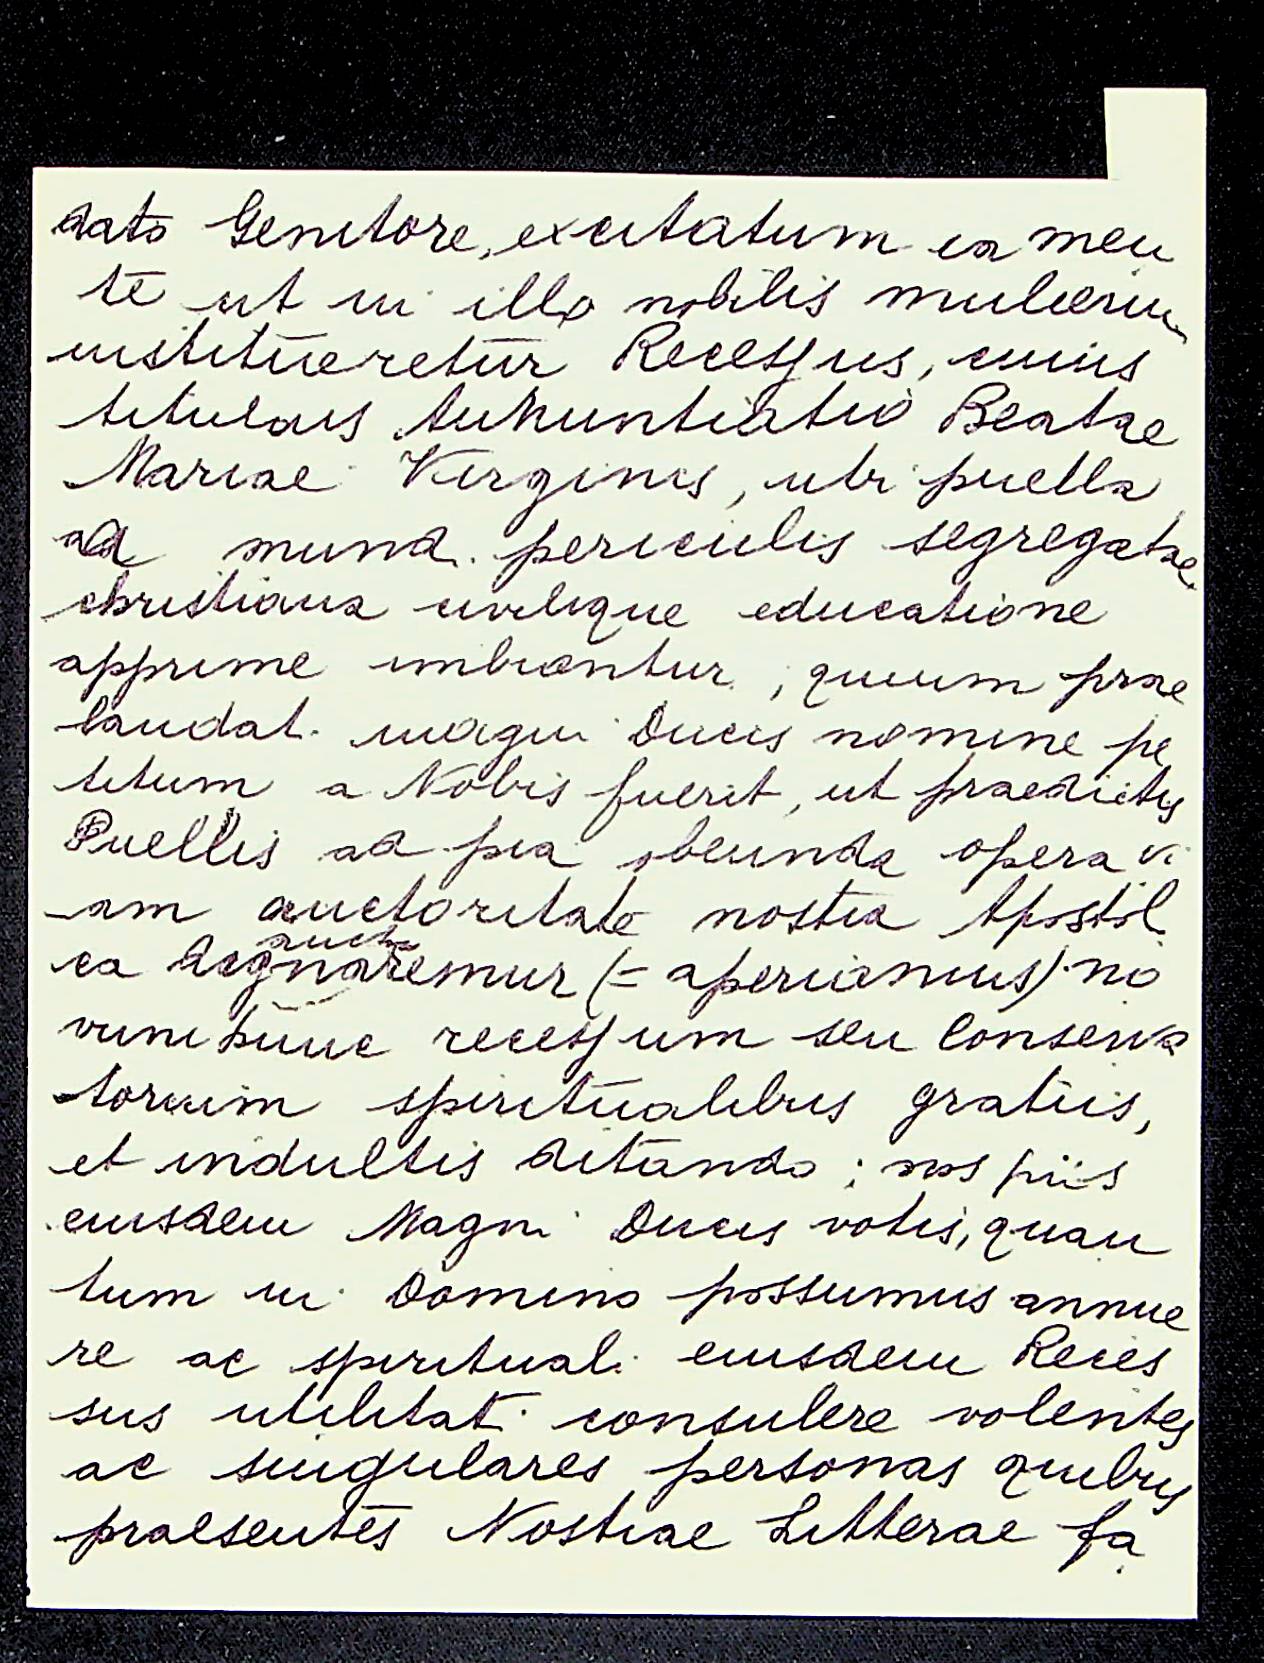 dato Genitore, excitatum ea men
te ut in illo nobilis mulierum
institueretur Recessus, cuius
titularis Annuntiatio Beatae
Mariae Virginis, ubi puella
a mund. periculis segregatae
christiana civilique educatione
apprime imbuantur; quum prae
laudat. magni Ducis nomine pe
titum a Nobis fuerit, ut praedictis
Puellis ad pia obeunda opera vi
am auctoritate nostra Apostol
ca dignaremur (= aperiamus) no
vum hunc recessum seu Conserva
torium spiritualibus gratiis,
et indultis ditando; nos piis
eiusdem Magni Ducis votis, quan
tum in Domino possumus annue
re ac spiritual. eiusdem Reces
sus utilitat. consulere volentes
ac singulares personas quibus
praesentes Nostrae Litterae fa